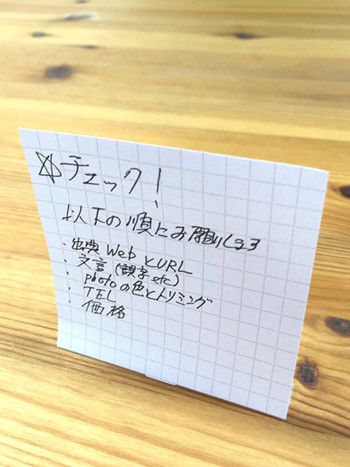 ☆チェック!
以下の順にお願いします
・出典 Web とURL
・文言 (誤字 etc)
・photo の色とトリミング
・TEL
・価格